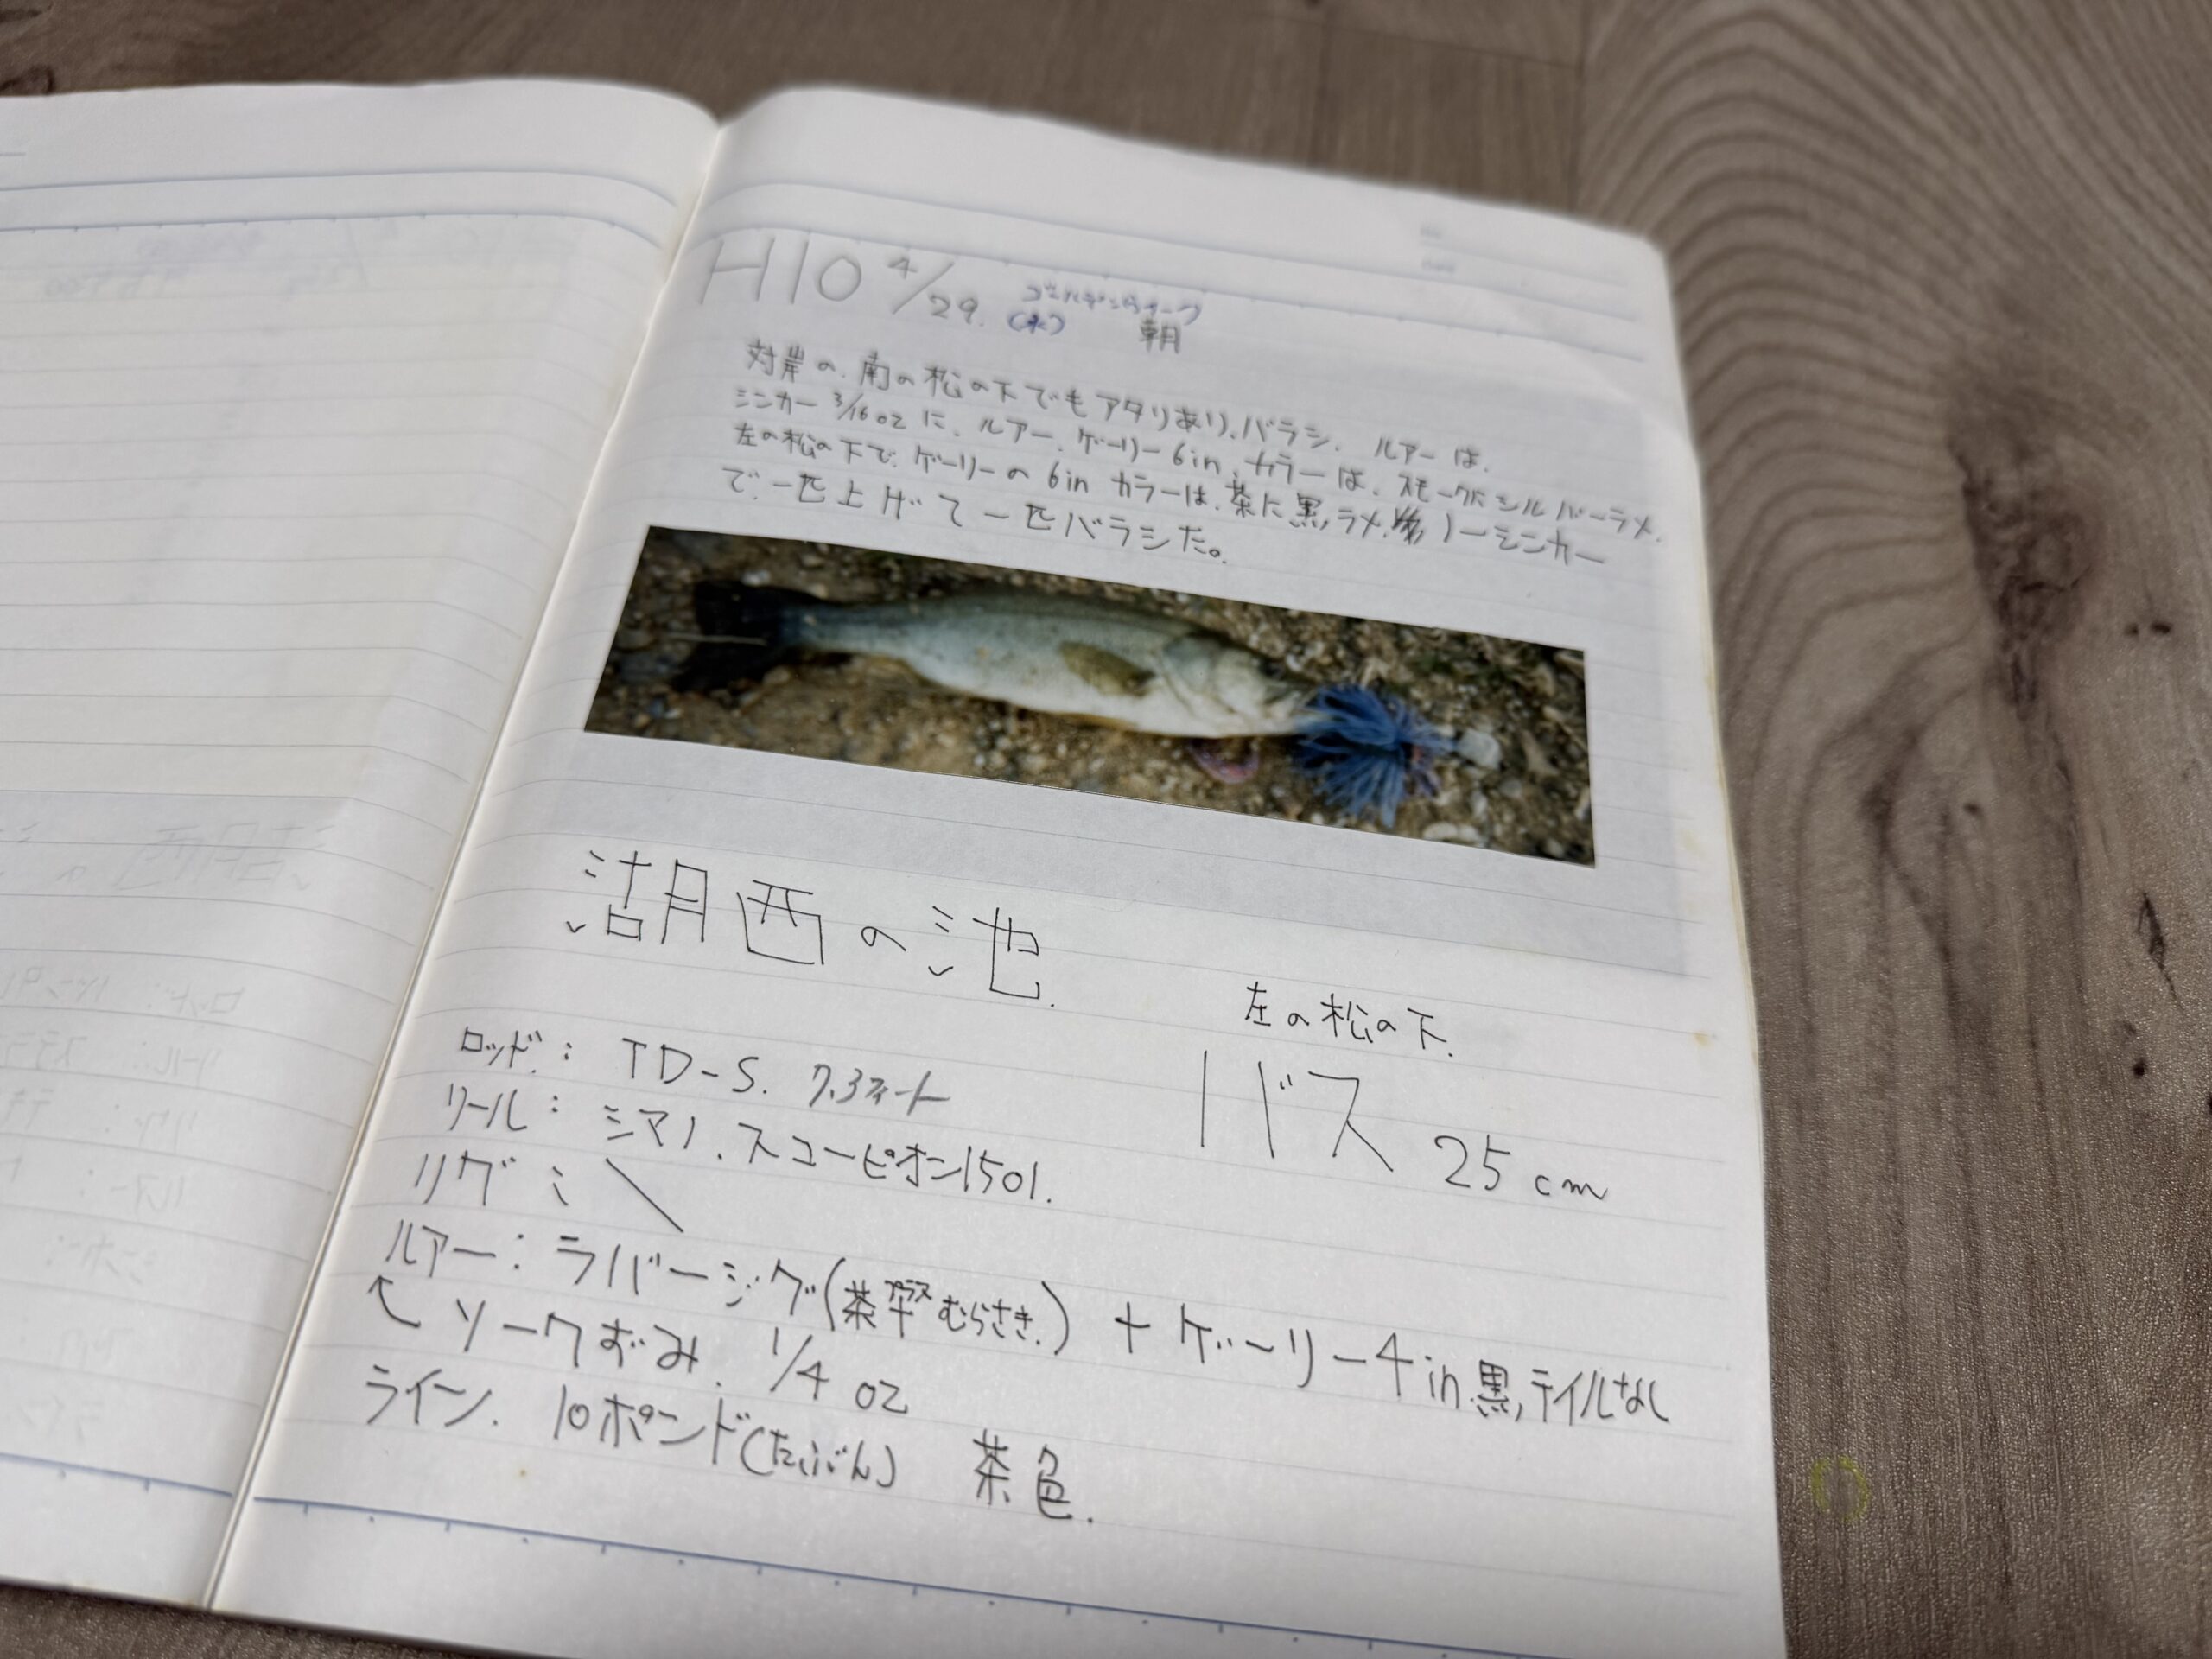 H10 4/29. (水) ゴールデンウィーク 朝
対岸の、南の松の下でもアタリあり、バラシ. ルアーは.
シンカー 3/16ozに、ルアー、ゲーリー6in、カラーは、スモークにシルバーラメ.
左の松の下で、ゲーリーの6inカラーは、茶に黒ラメ、ノーシンカー
で、一匹上げて一匹バラシた。
湖西の池.
左の松の下.
バス 25cm
ロッド: TD-S. 7.3フィート
リール: シマノ.スコーピオン1501.
リグ: \
ルアー: ラバージグ(茶プラスむらさき.) + ゲーリー4in.黒,テイルなし
↑ ソークおみ. 1/4 oz
ライン. 10ポンド(たぶん) 茶色.